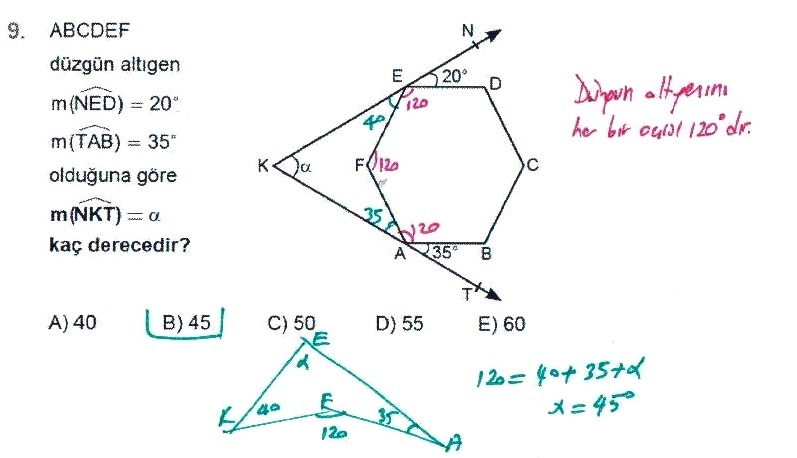 9. ABCDEF
düzgün altıgen
m(NED) = 20°
m(TAB) = 35°
olduğuna göre
m(NKT) = α
kaç derecedir?
N
E
20°
D
120
40
K
α
F
120
C
35
120
A
35°
B
T
Düzgün altıgenin
her bir açısı 120°dir.
A) 40
B) 45
C) 50
D) 55
E) 60
E
α
K
40
F
120
35
A
120 = 40 + 35 + α
α = 45°